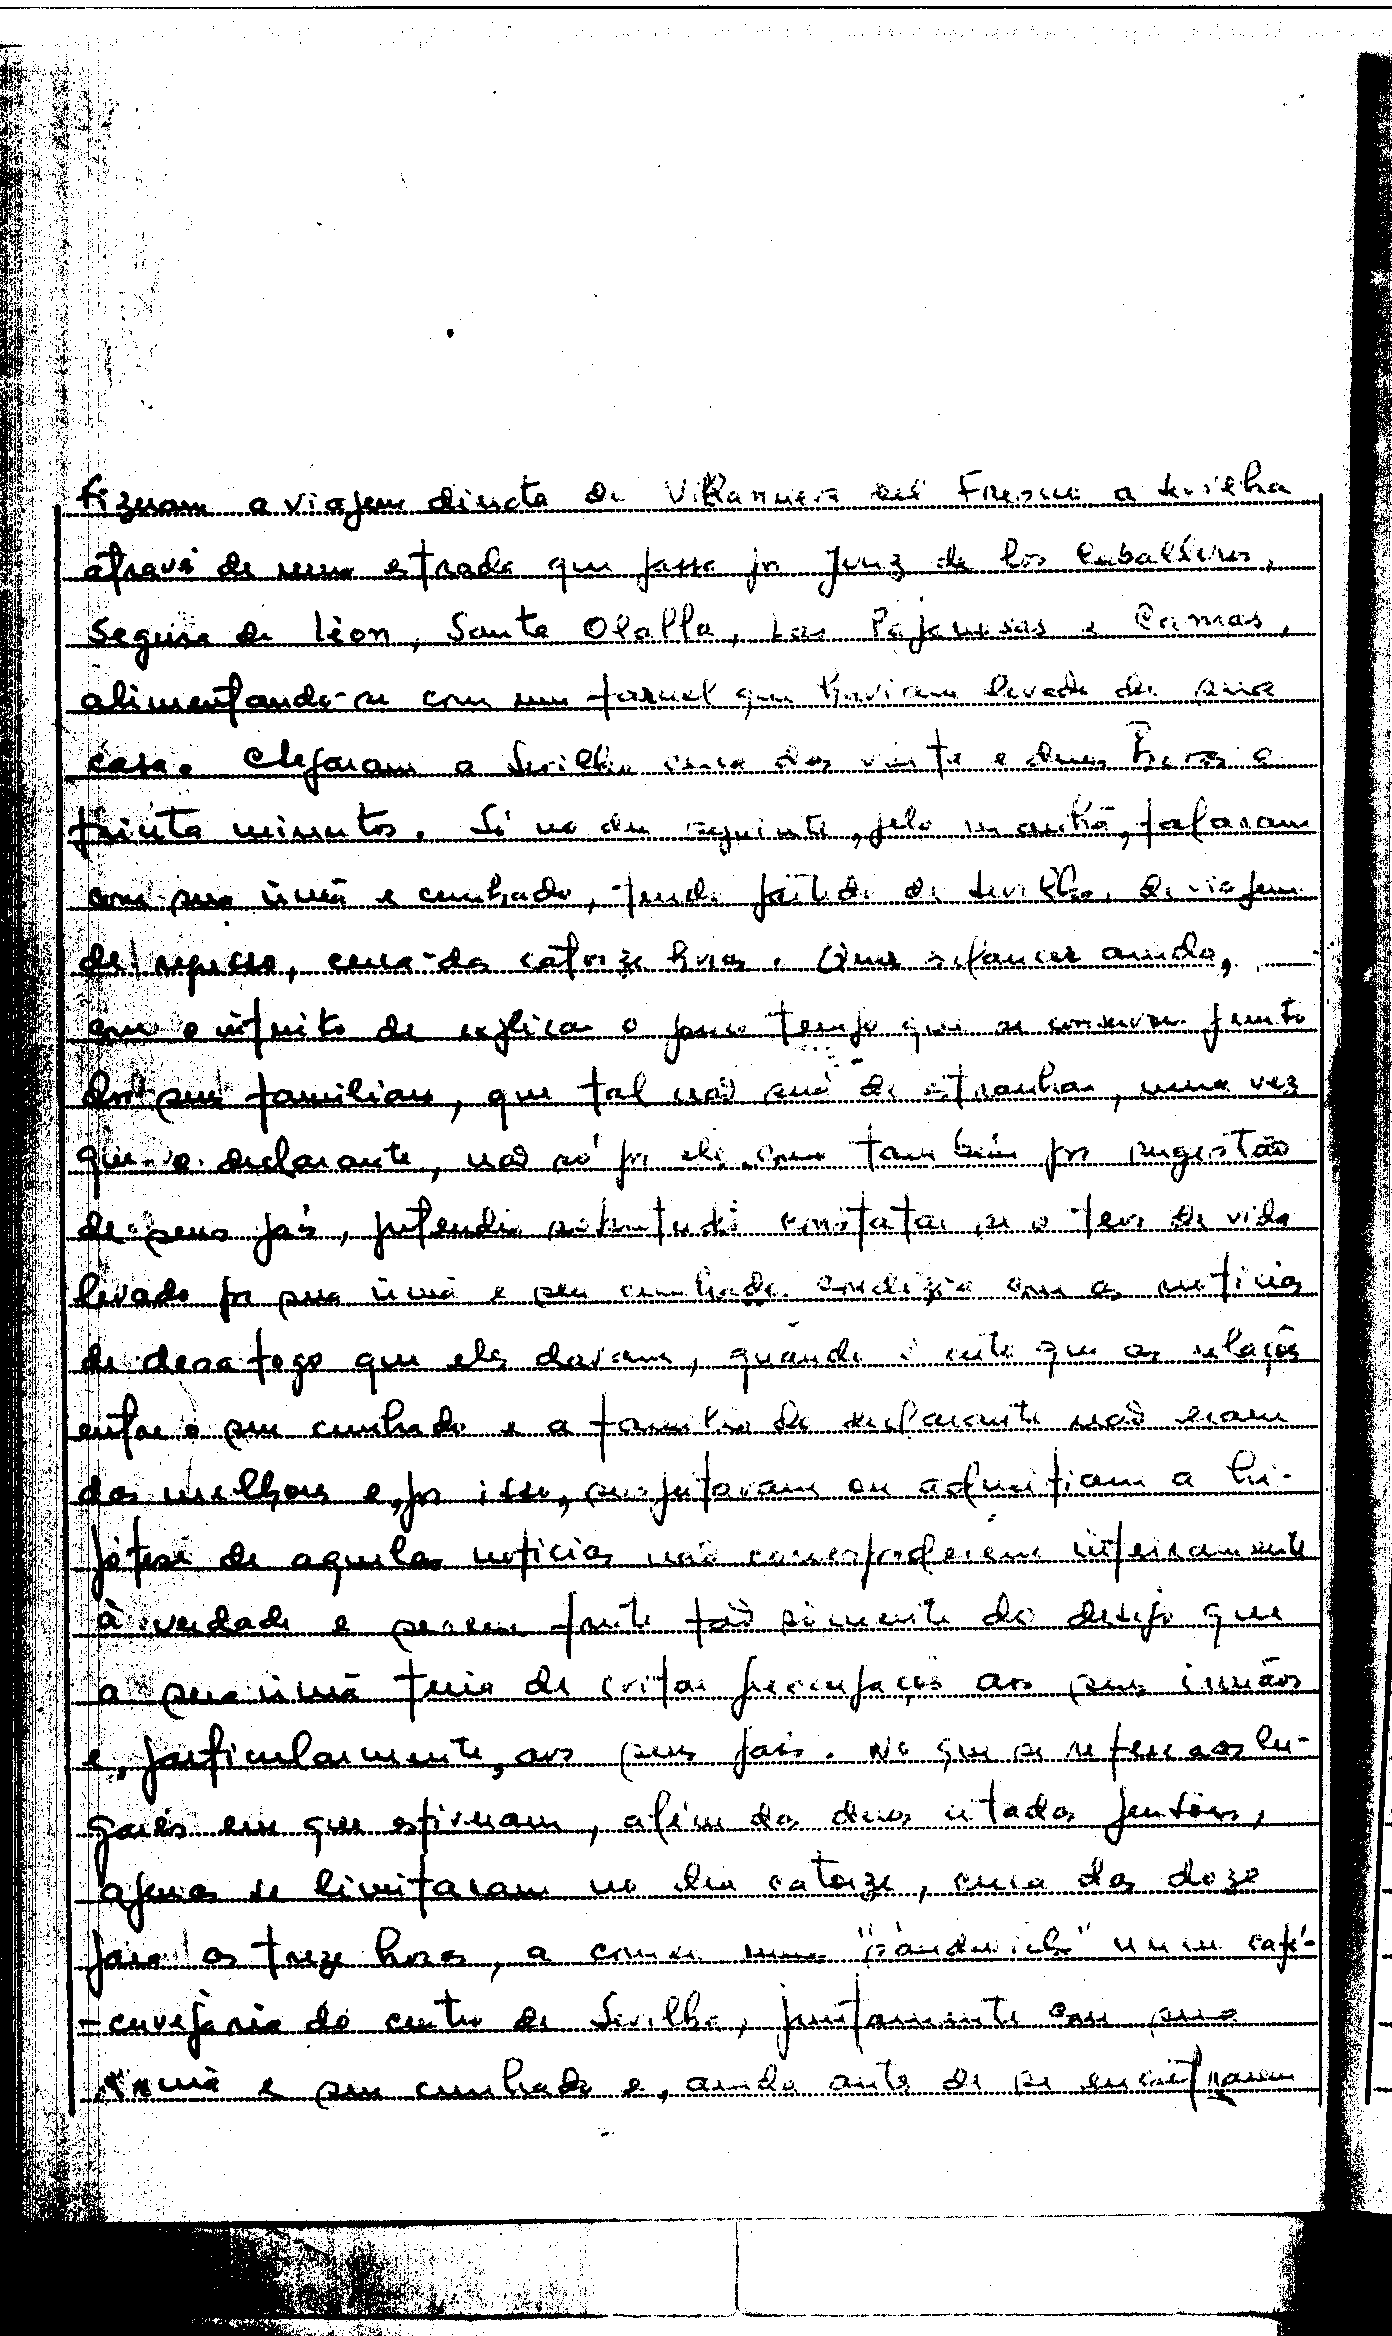 Fizeram a viajem directa de Villanueva del Fresno a Sevilha
através de uma estrada que passa por Jerez de los Caballeros,
Segura de Léon, Santa Olalla, Las Pajanosas e Camas,
alimentando-se com um farnel que haviam levado de sua
casa. Chegaram a Sevilha cerca das vinte e duas horas e
trinta minutos. Só no dia seguinte, pela manhã, falaram
com sua irmã e cunhado, tendo partido de Sevilha, de viajem
de regresso, cerca das catorze horas. Quer esclarecer ainda,
com o intuito de explicar o pouco tempo que se conservou junto
dos seus familiares, que tal não será de estranhar, uma vez
que o declarante, não só por ele como também por sugestão
de seus pais, pretendia sobretudo constatar se o teor de vida
levado por sua irmã e seu cunhado condizia com as notícias
de desafogo que eles davam, quando é certo que as relações
entre o seu cunhado e a família do declarante não eram
das melhores e, por isso, suspeitavam ou admitiam a hi-
pótese de aquelas notícias não corresponderem inteiramente
à verdade e serem fruto tão sómente do desejo que
a sua irmã teria de evitar preocupações aos seus irmãos
e, particularmente, aos seus pais. No que se refere aos lu-
gares em que estiveram, além das duas citadas pensões,
apenas se limitaram no dia catorze, cerca das doze
para as treze horas, a comer uma "sandwich" num café-
-cervejaria do centro de Sevilha, juntamente com sua
irmã e seu cunhado e, ainda antes de se encontrarem